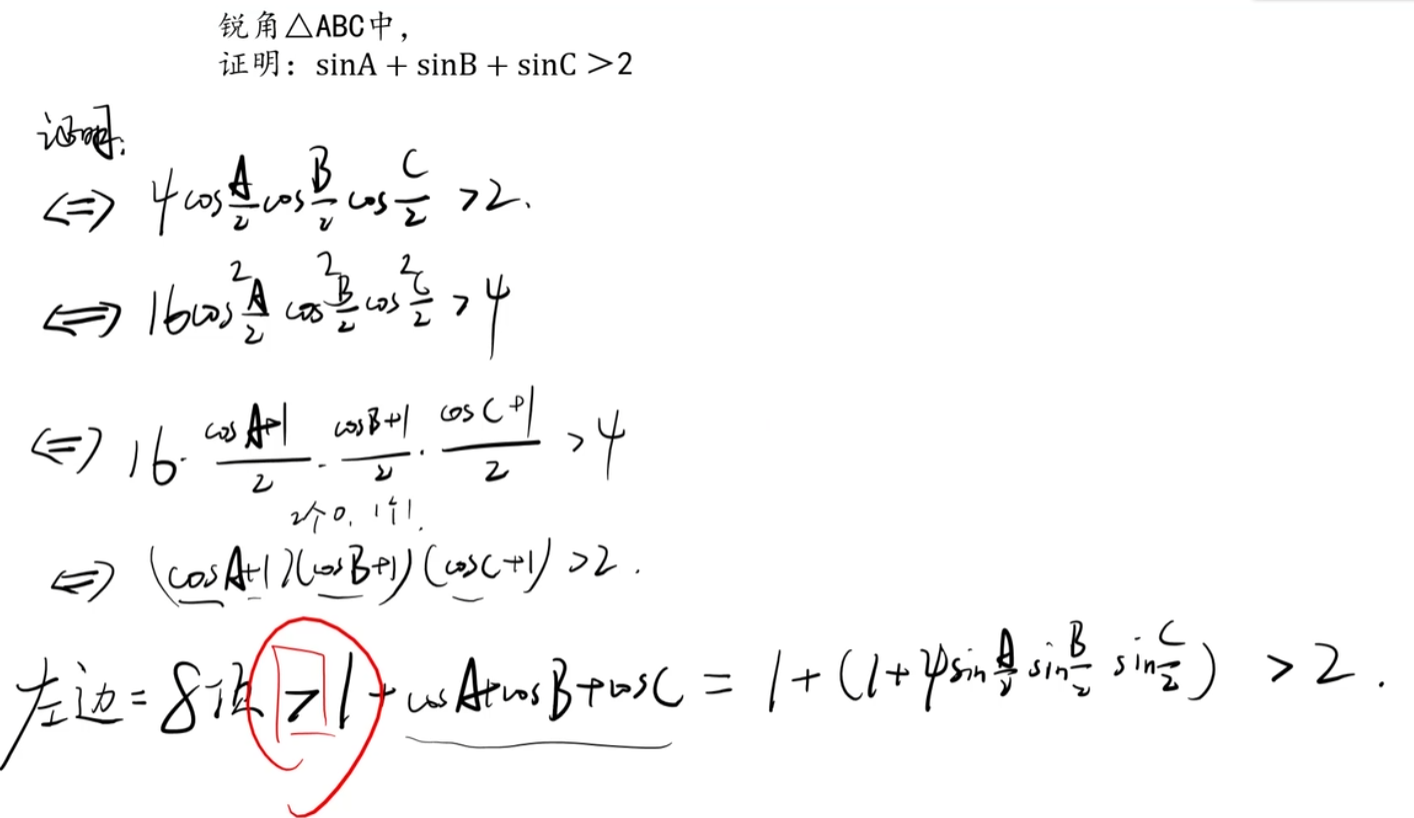 锐角△ABC中，
证明：sinA + sinB + sinC >2
证明:
<=> 4cos A/2 cos B/2 cos C/2 >2.
<=> 16cos² A/2 cos² B/2 cos² C/2 >4
<=> 16·(cosA+1)/2·(cosB+1)/2·(cosC+1)/2 >4
2个0, 1个1.
<=> (cosA+1)(cosB+1)(cosC+1)>2.
左边=8项>1+cosA+cosB+cosC=1+(1+4sin A/2 sin B/2 sin C/2) >2.